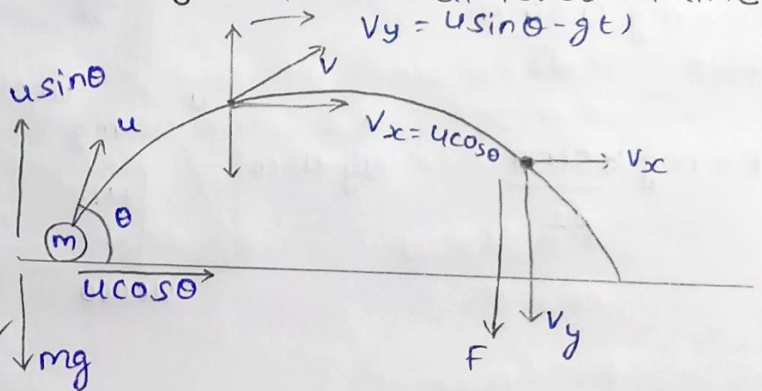 Vy = usinθ - gt)
usinθ
u
V
Vx = ucosθ
Vx
θ
m
ucosθ
mg
F
Vy